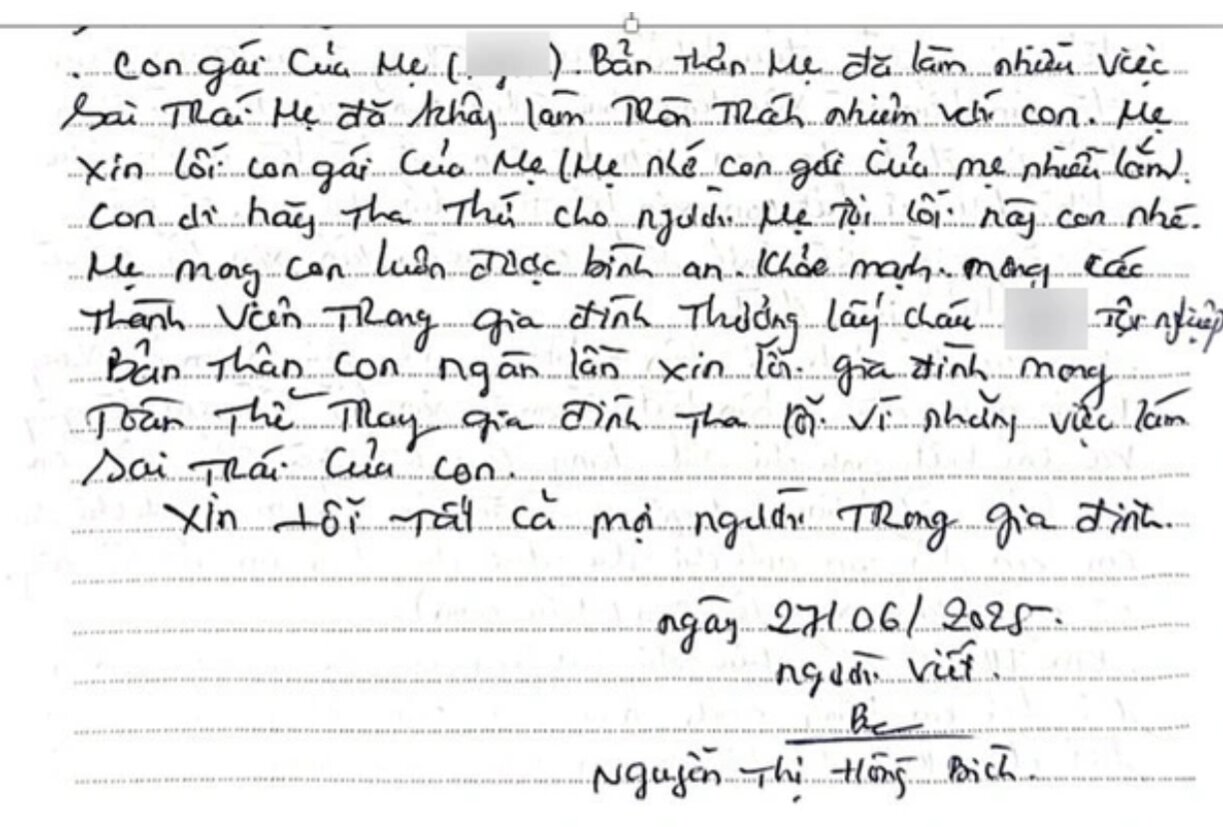 . Con gái Của Mẹ ( ). Bản thân Mẹ đã làm nhiều việc
Sai Trái Mẹ đã không làm Tròn Trách nhiệm với con. Mẹ
xin lỗi con gái Của Mẹ (Mẹ nhớ con gái Của mẹ nhiều lắm).
Con ơi hãy Tha Thứ cho người Mẹ Tội lỗi này con nhé.
Mẹ mong con luôn được bình an. Khỏe mạnh. mong các
Thành Viên Trong gia đình Thương lấy cháu Tội nghiệp
Bản Thân con ngàn lần xin lỗi gia đình mong
Toàn Thể Trong gia đình Tha lỗi vì những việc làm
Sai Trái Của con.
Xin lỗi Tất cả mọi người Trong gia đình.
ngày 27/06/2025.
người viết.
Bc
Nguyễn Thị Hồng Bích.